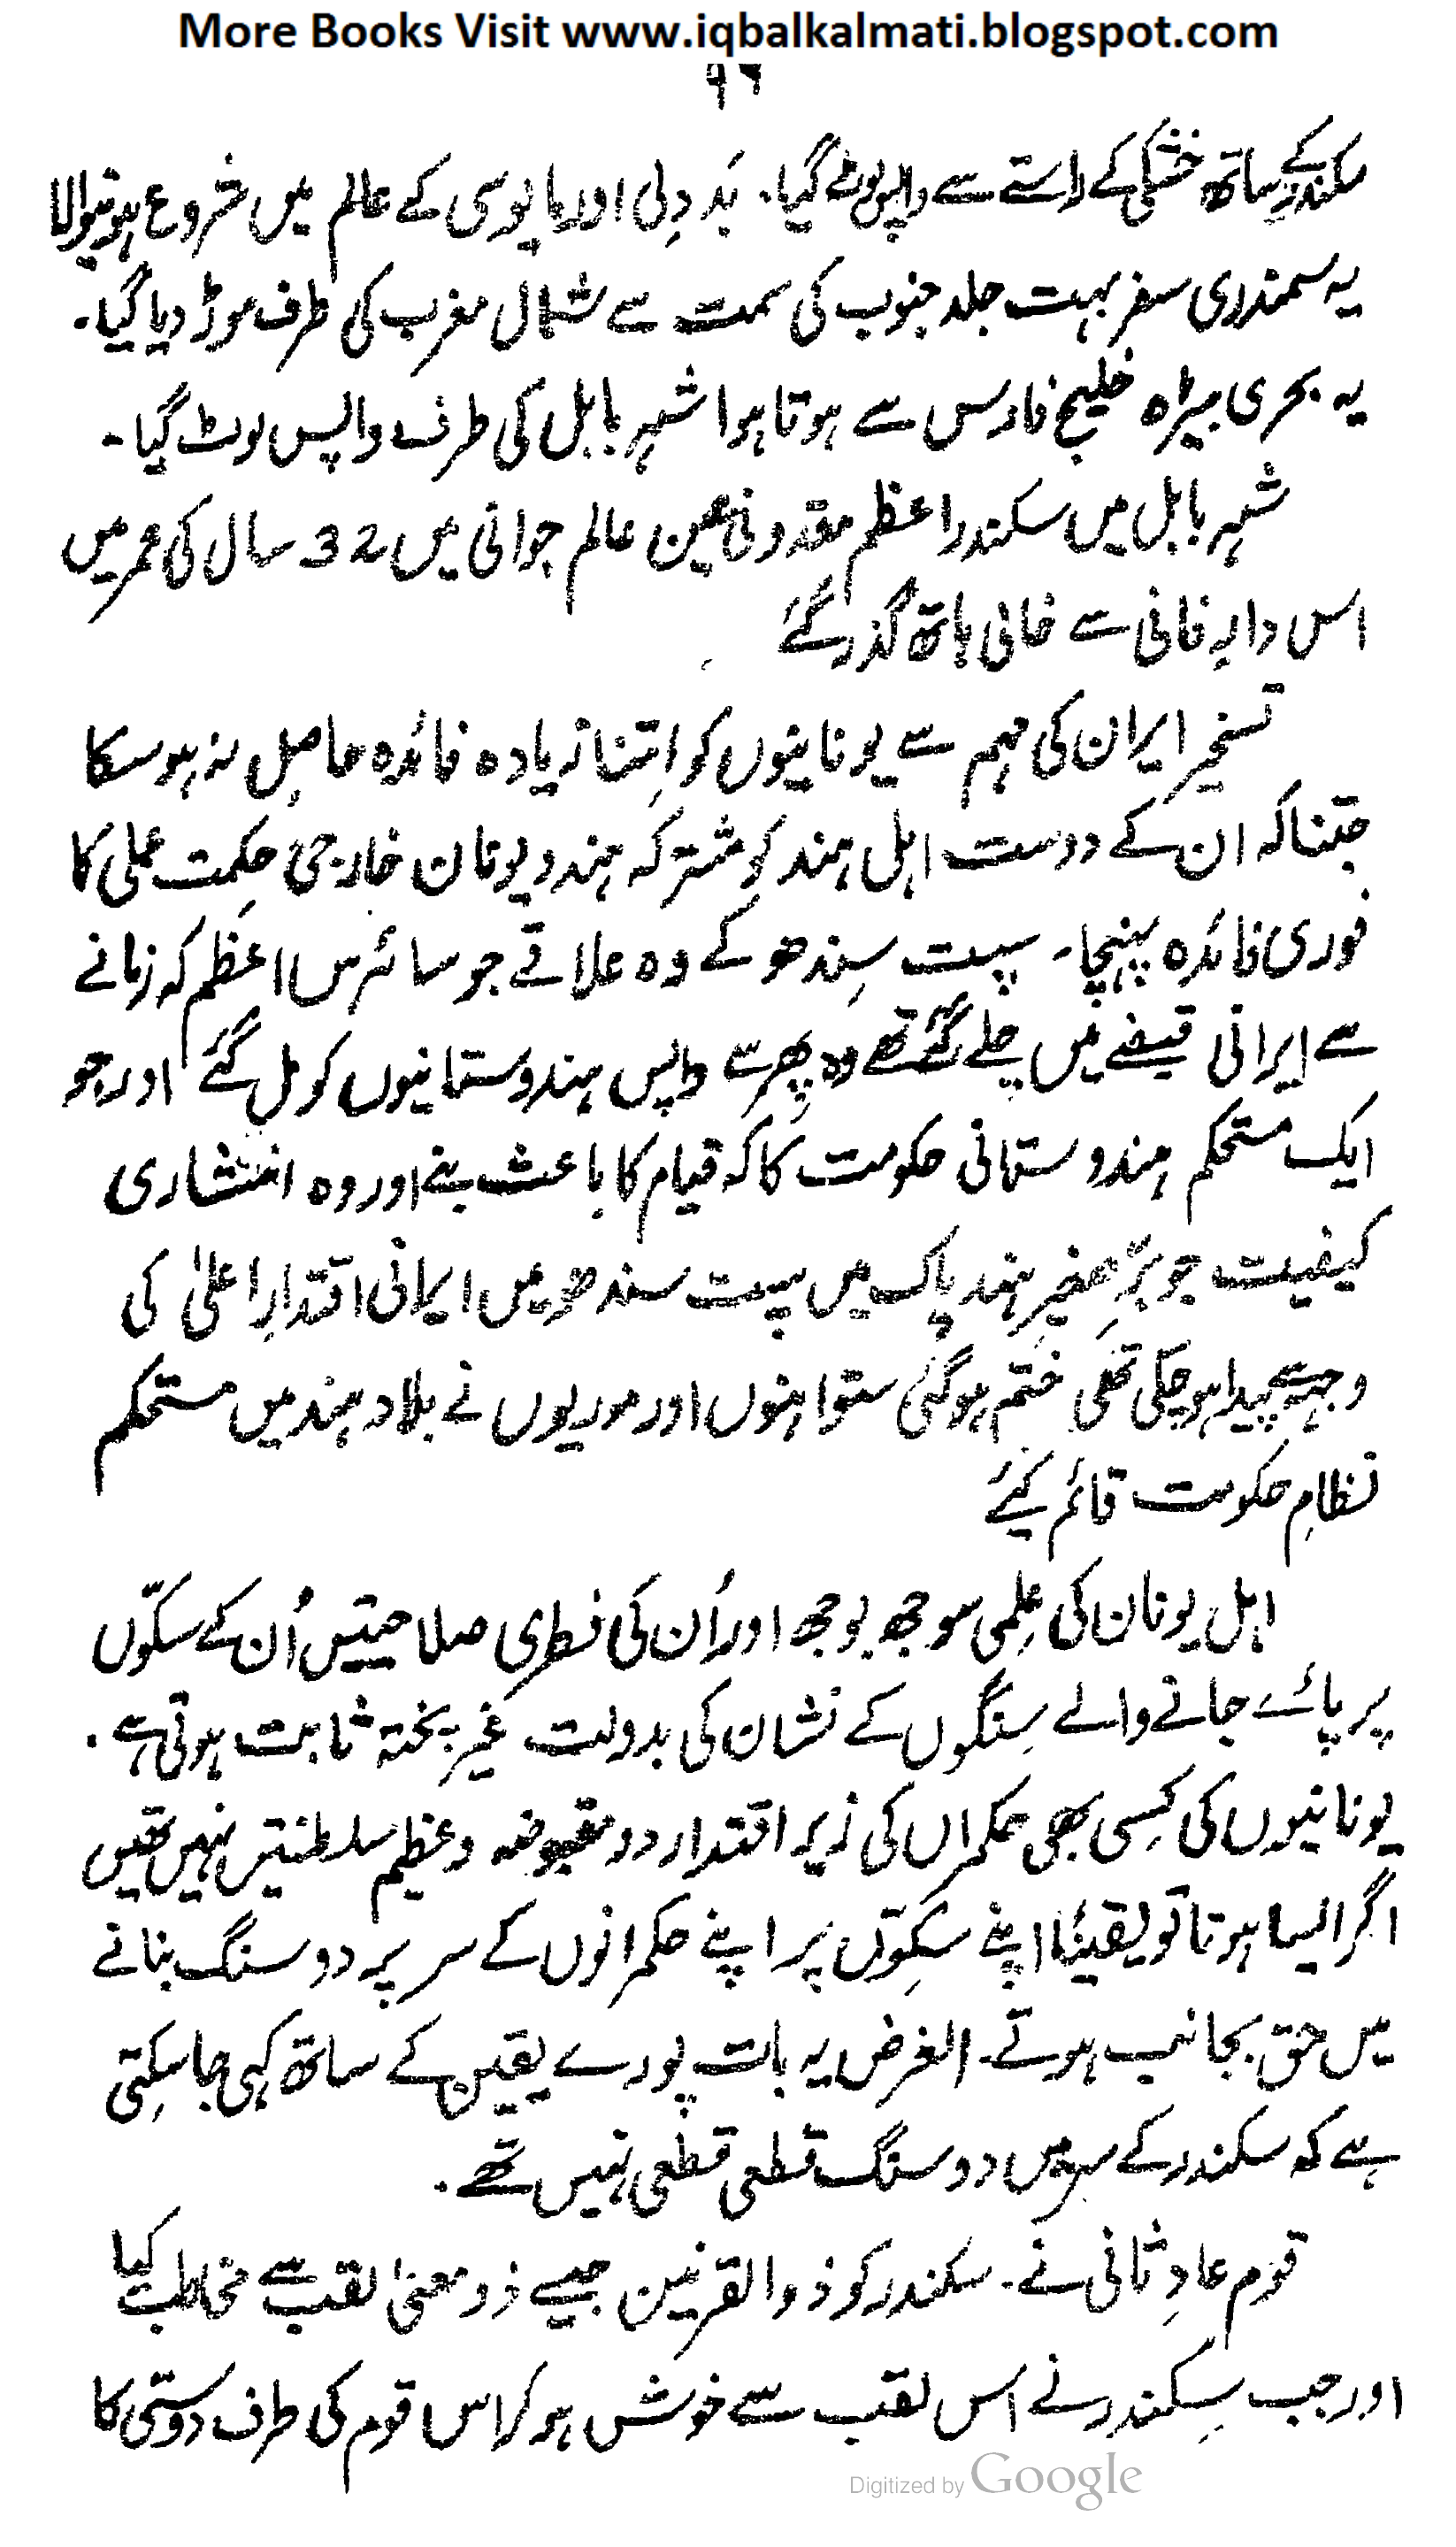 More Books Visit www.iqbalkalmati.blogspot.com
۹۶
سکندر کے ساتھ خشکی کے راستے سے واپس لوٹ گیا۔ بَد دِلی اور مایوسی کے عالم میں شروع ہونیوالا
یہ سمندری سفر بہت جلد جنوب کی سمت سے شمال مغرب کی طرف موڑ دیا گیا۔
یہ بحری بیڑہ خلیج فارس سے ہوتا ہوا شہر بابل کی طرف واپس لوٹ گیا۔
شہر بابل میں سکندر اعظم مقدونی عین عالم جوانی میں 32 سال کی عمر میں
اس دارِ فانی سے خالی ہاتھ گذر گئے
تسخیر ایران کی مہم سے یونانیوں کو اِتنا زیادہ فائدہ حاصِل نہ ہو سکا
جتنا کہ ان کے دوست اہل ہند کو مشترکہ ہند و یونان خارجی حِکمت عملی کا
فوری فائدہ پہنچا۔ سپت سِندھو کے وہ علاقے جو سائرس اعظم کہ زمانے
سے ایرانی قبضے میں چلے گئے تھے وہ پھر سے واپس ہندوستانیوں کو مل گئے اور جو
ایک مستحکم ہندوستانی حکومت کا کہ قیام کا باعث بنے اور وہ انتشاری
کیفیت جو برِّ صغیرِ ہند پاک میں سپت سندھو میں ایرانی اقتدارِ اعلیٰ کی
وجہ سے پیدا ہو چکی تھی ختم ہو گئی ستواہنوں اور موریوں نے بلاد ہند میں مستحکم
نظامِ حکومت قائم کیئے
اہل یونان کی عِلمی سوجھ بوجھ اور اُن کی فطری صلاحیتیں اُن کے سکّوں
پر پائے جانے والے سِنگوں کے نشان کی بدولت غیر پختہ ثابت ہوتی ہے۔
یونانیوں کی کِسی بھی حکمراں کی زیر اقتدار دو مقبوضہ و عظیم سلطنتیں نہیں تھیں
اگر ایسا ہوتا تو یقیناً اپنے سِکّوں پر اپنے حکمرانوں کے سر پر دو سنگ بنانے
میں حق بجانب ہوتے۔ الغرض یہ بات پورے یقین کے ساتھ کہی جا سکِتی
ہے کہ سکندر کے سر میں دو سنگ قطعی قطعی نہیں تھے۔
قوم عادِ ثانی نے۔ سکندر کو ذوالقرنین جیسے ذو معنیٰ لقب سے مخاطب کیا
اور جب سِکندر نے اس لقب سے خوش ہو کر اس قوم کی طرف دوستی کا
Digitized by Google